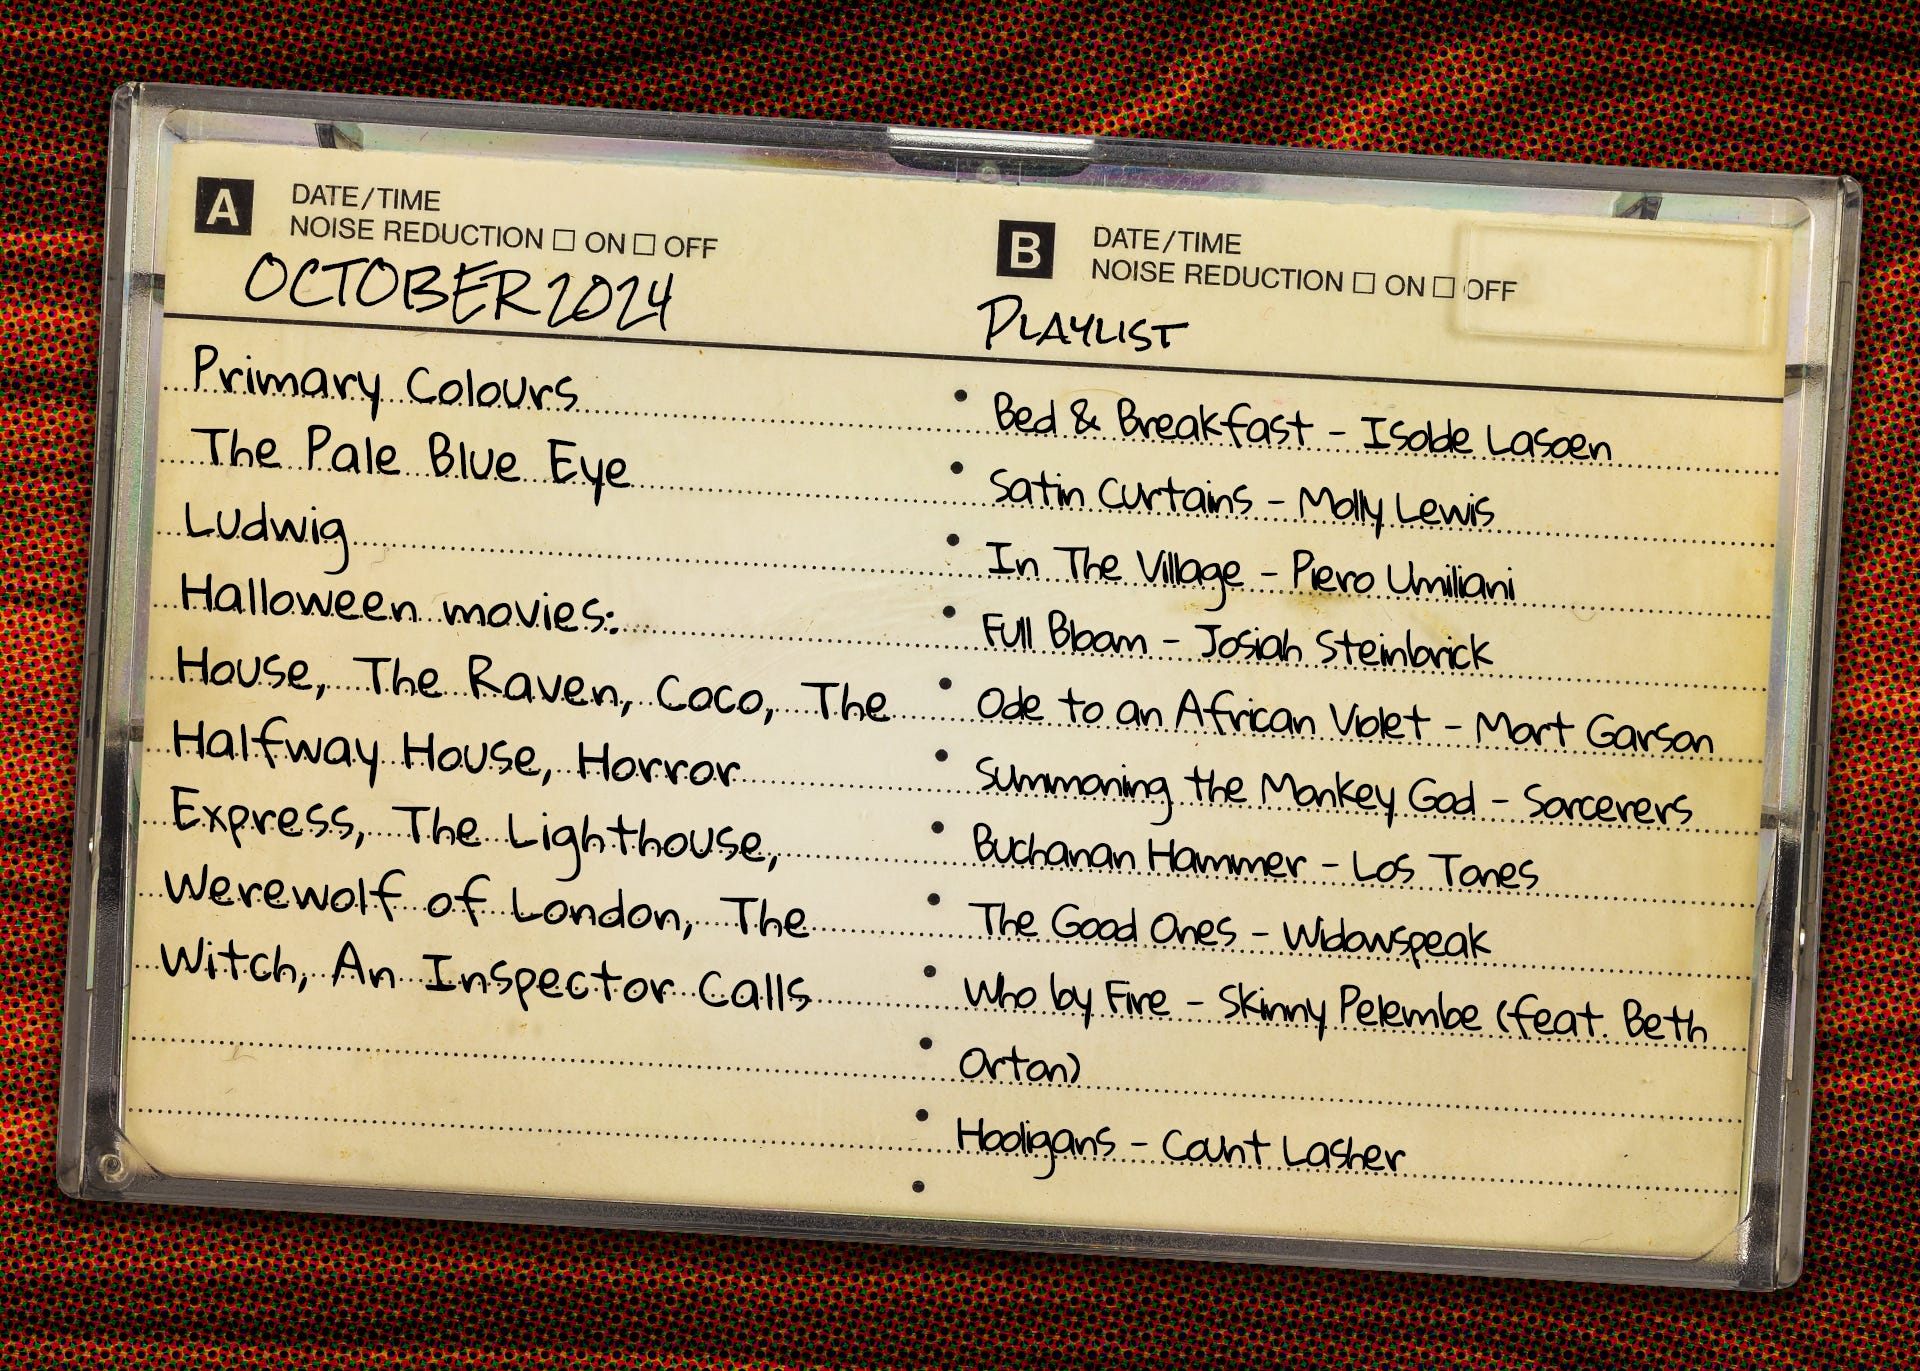 A
DATE/TIME
NOISE REDUCTION ☐ ON ☐ OFF
OCTOBER 2024
Primary Colours
The Pale Blue Eye
Ludwig
Halloween movies:
House, The Raven, Coco, The
Halfway House, Horror
Express, The Lighthouse,
Werewolf of London, The
Witch, An Inspector Calls
B
DATE/TIME
NOISE REDUCTION ☐ ON ☐ OFF
PLAYLIST
Bed & Breakfast - Isolde Lasoen
Satin Curtains - Molly Lewis
In The Village - Piero Umiliani
Full Bloom - Josiah Steinbrick
Ode to an African Violet - Mort Garson
Summoning the Monkey God - Sorcerers
Buchanan Hammer - Los Tones
The Good Ones - Widowspeak
Who by Fire - Skinny Pelembe (feat. Beth
Orton)
Hooligans - Count Lasher